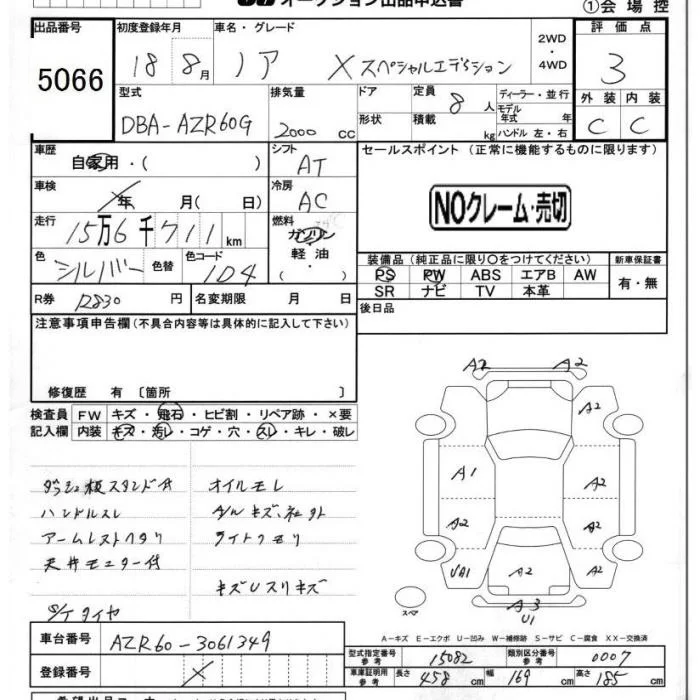 オークション出品申込書
①会場控
出品番号 初度登録年月 車名・グレード 2WD・4WD 評価点
5066 18 8月 ノア X スペシャルエディション 3
型式 排気量 ドア 定員 8人 ディーラー・並行 外装 内装
モデル年式 年
DBA-AZR60G 2000cc 形状 積載 kg ハンドル 左・右 C C
車歴 自家用・( ) シフト AT セールスポイント (正常に機能するものに限ります)
車検 年 月( 日) 冷房 AC NOクレーム・売切
走行 15万6千711km 燃料 ガソリン
軽油
・
( )
色 シルバー 色替 色コード 1D4
装備品 (純正品に限り○をつけてください) 新車保証書
PS PW ABS エアB AW 有・無
SR ナビ TV 本革
R券 12830円 名変期限 月 日 後日品
注意事項申告欄 (不具合内容等は具体的に記入して下さい)
修復歴 有 〔箇所 〕
検査員記入欄 FW キズ・飛石・ヒビ割・リペア跡・×要
内装 キズ・汚レ・コゲ・穴・スレ・キレ・破レ
A2 A2
A2
A1 A2
A2 A2
UA1 A2 A2
A3
U1
スペア
ダッシュ板スタンド付 オイルモレ
ハンドルスレ
アームレストヘタリ ライトクモリ
天井モニター付
キズUスリキズ
S/T タイヤ
A-キズ E-エクボ U-凹み W-補修跡 S-サビ C-腐食 XX-交換済
車台番号 AZR60-3061349
型式指定番号 参考 15082 類別区分番号 参考 0007
登録番号 ×
車庫証明用 参考 長さ 458cm 幅 169cm 高さ 185cm